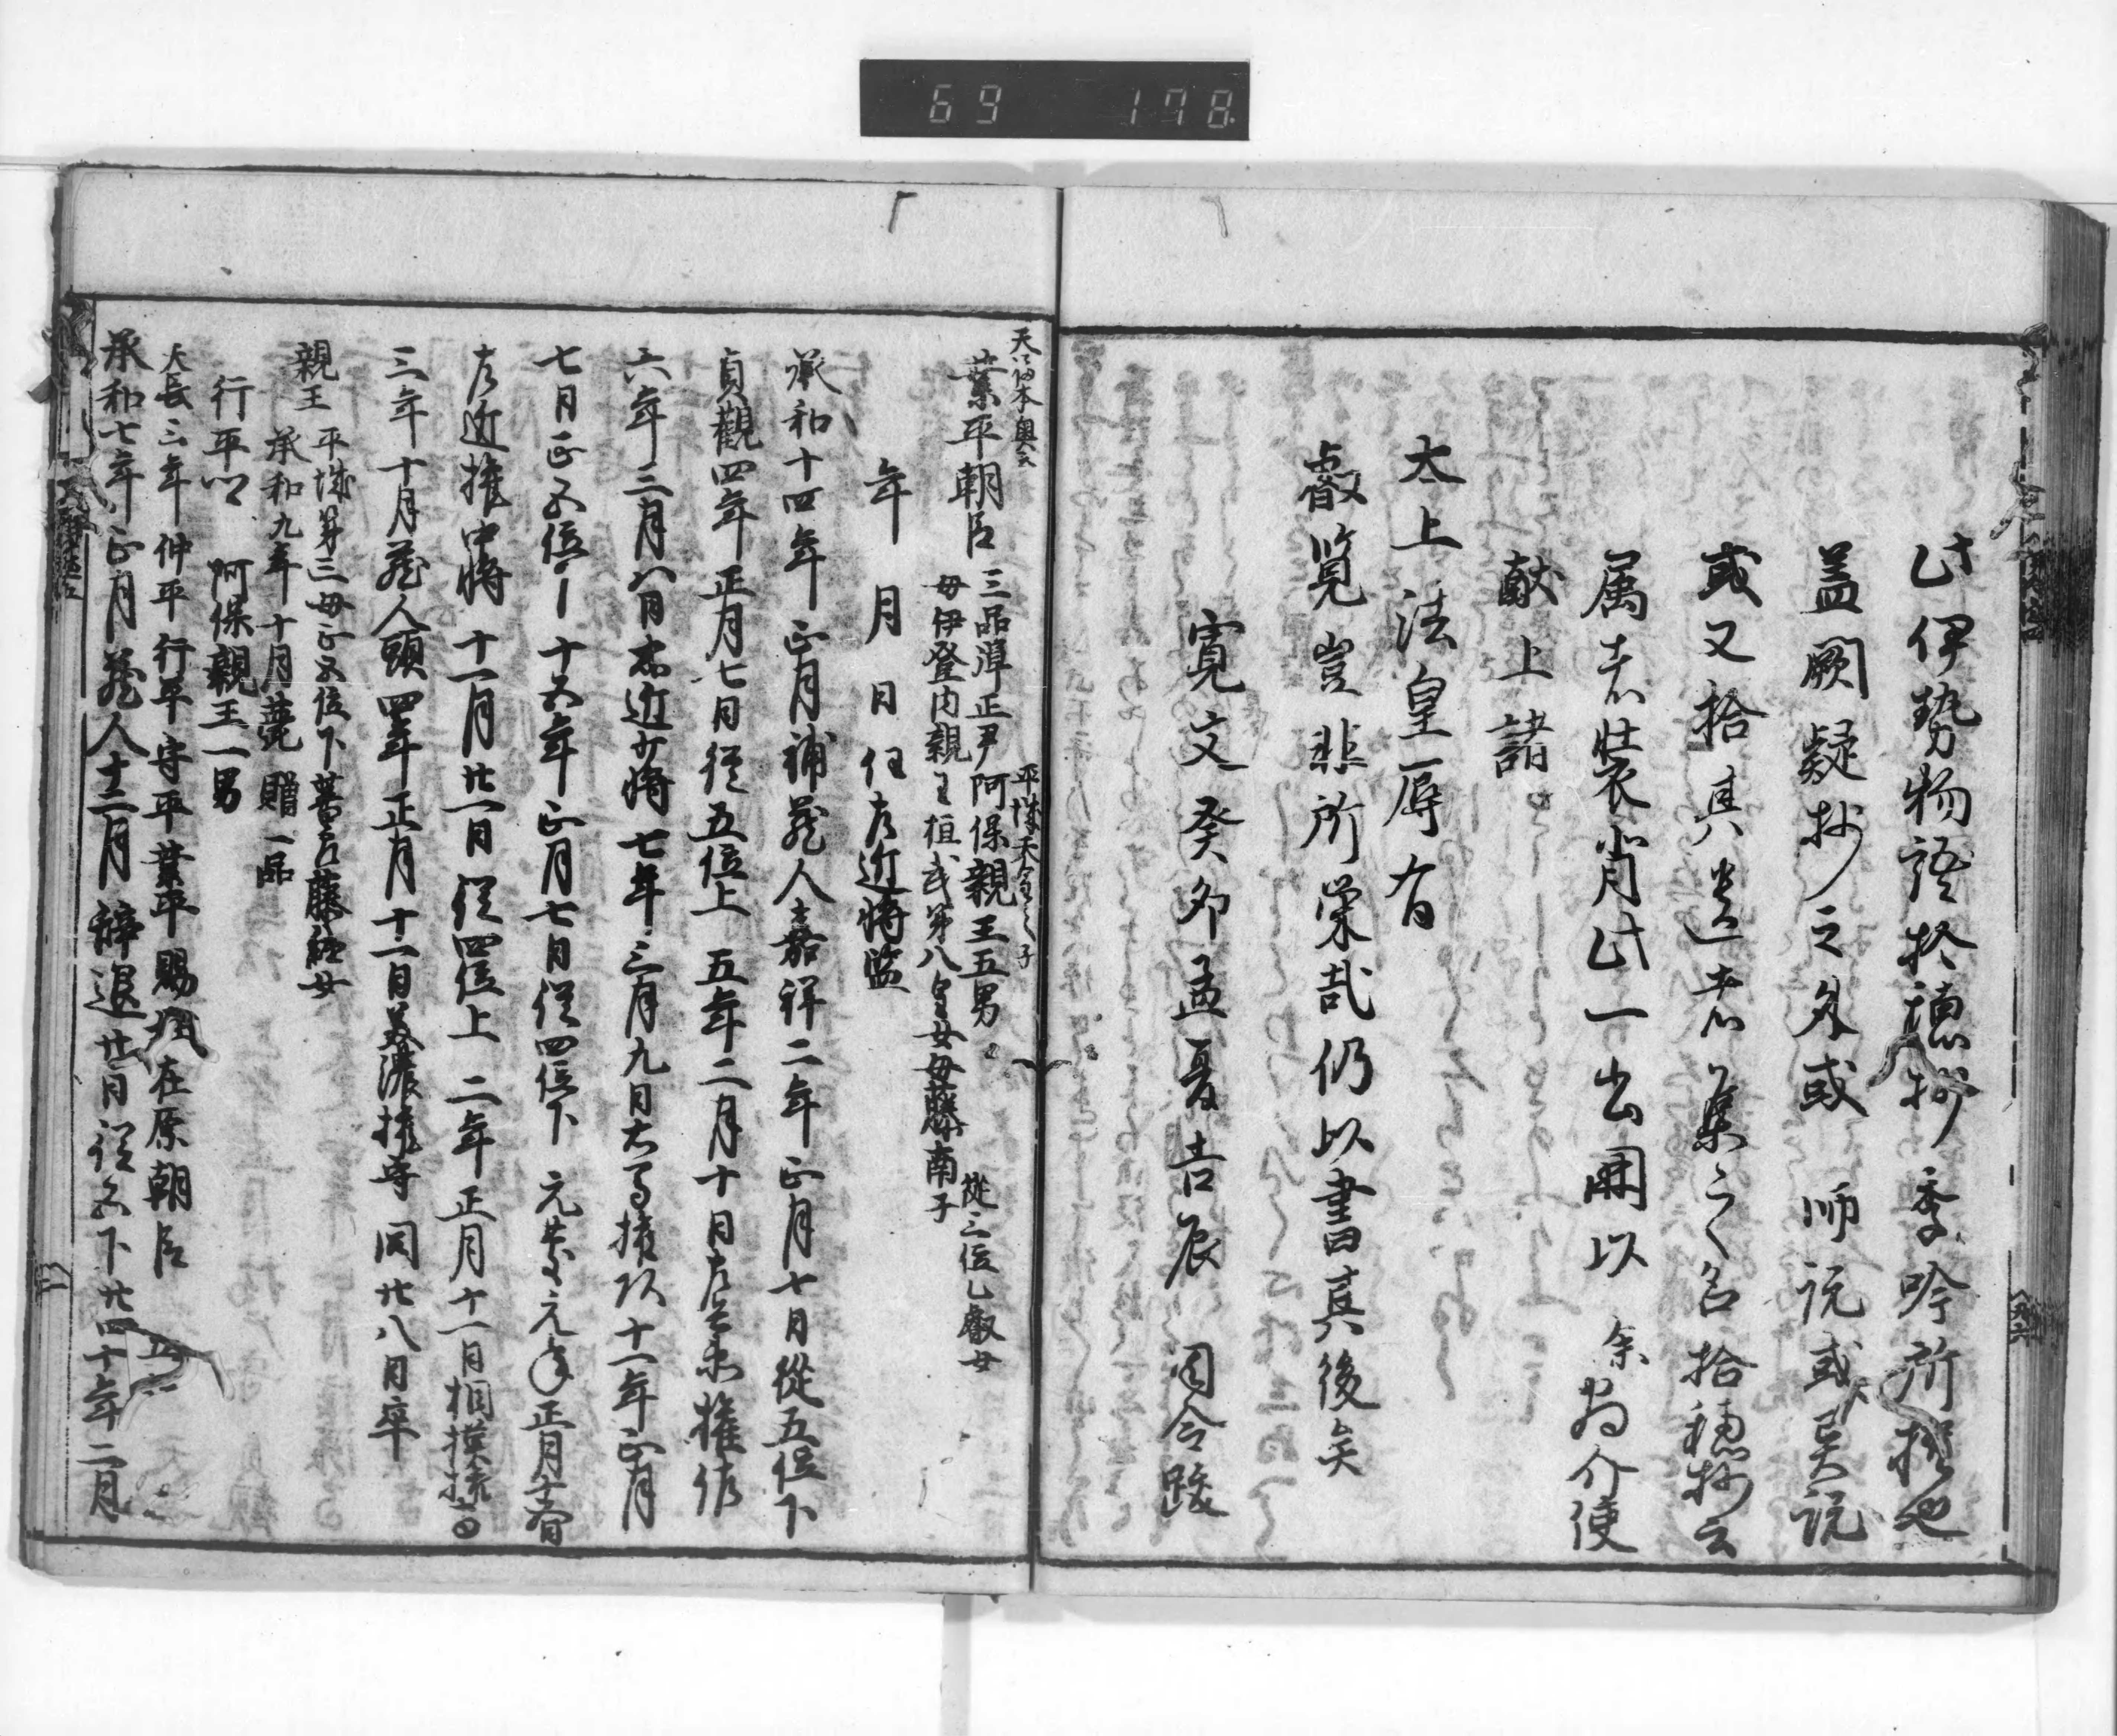 69 178
此伊勢物語拾穂抄季吟所撰也
蓋闕疑抄之外或師説或異説
或又拾其遺者集之名拾穂抄云
属者装背此一出閑以余為介使
献上諸
太上法皇辱有
叡覧豈非所栄哉仍以書其後矣
寛文癸卯孟夏吉辰 目今踐
天福本奥云
業平朝臣 三品弾正尹阿保親王五男
平城天皇之子
母伊登内親王桓武第八皇女母藤南子
從三位乙叡女
年 月 日任左近将監
承和十四年正月補蔵人嘉祥二年正月七日從五位下
貞觀四年正月七日従五位上 五年二月十日左兵衛権佐
六年三月八日左近少将七年三月九日右馬権頭十一年正月
七日正五位下十五年正月七日従四位下 元慶元年正月十五日
左近権中将十一月廿一日従四位上 二年正月十一日相摸権守
三年十月蔵人頭四年正月十一日美濃権守同廿八日卒
親王 平城第三母正五位下蕃良藤継女
承和九年十月薨贈一品
行平 阿保親王一男
天長三年仲平行平守平業平賜姓在原朝臣
承和七年正月蔵人十二月辞退廿日従五下廿四十年二月